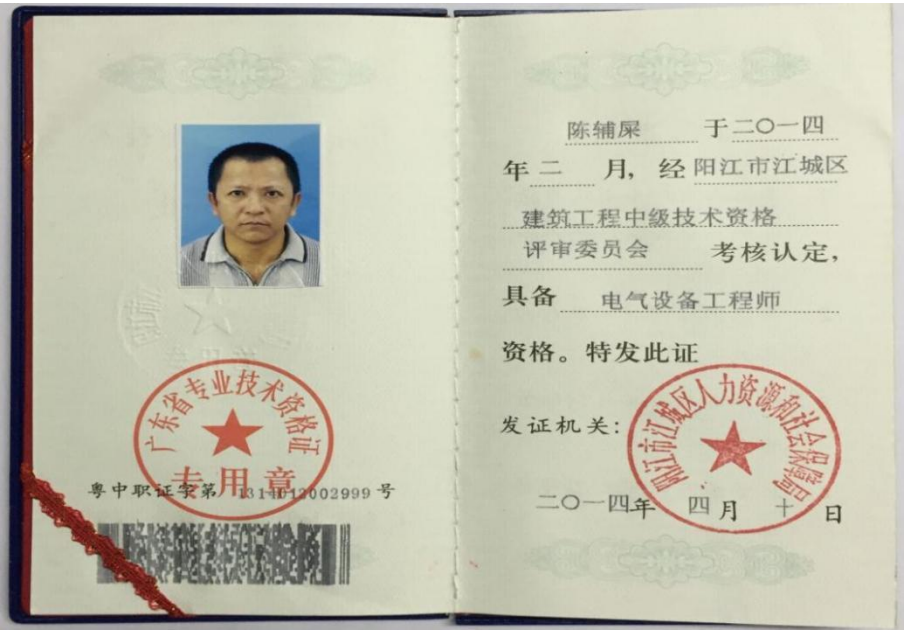 广东省专业技术资格证
专用章
粤中职证字第 1314012002999 号
陈辅屎 于二〇一四
年二 月, 经阳江市江城区
建筑工程中级技术资格
评审委员会 考核认定,
具备 电气设备工程师
资格。特发此证
发证机关:
阳江市江城区人力资源和社会保障局
二〇一四年 四月 十 日